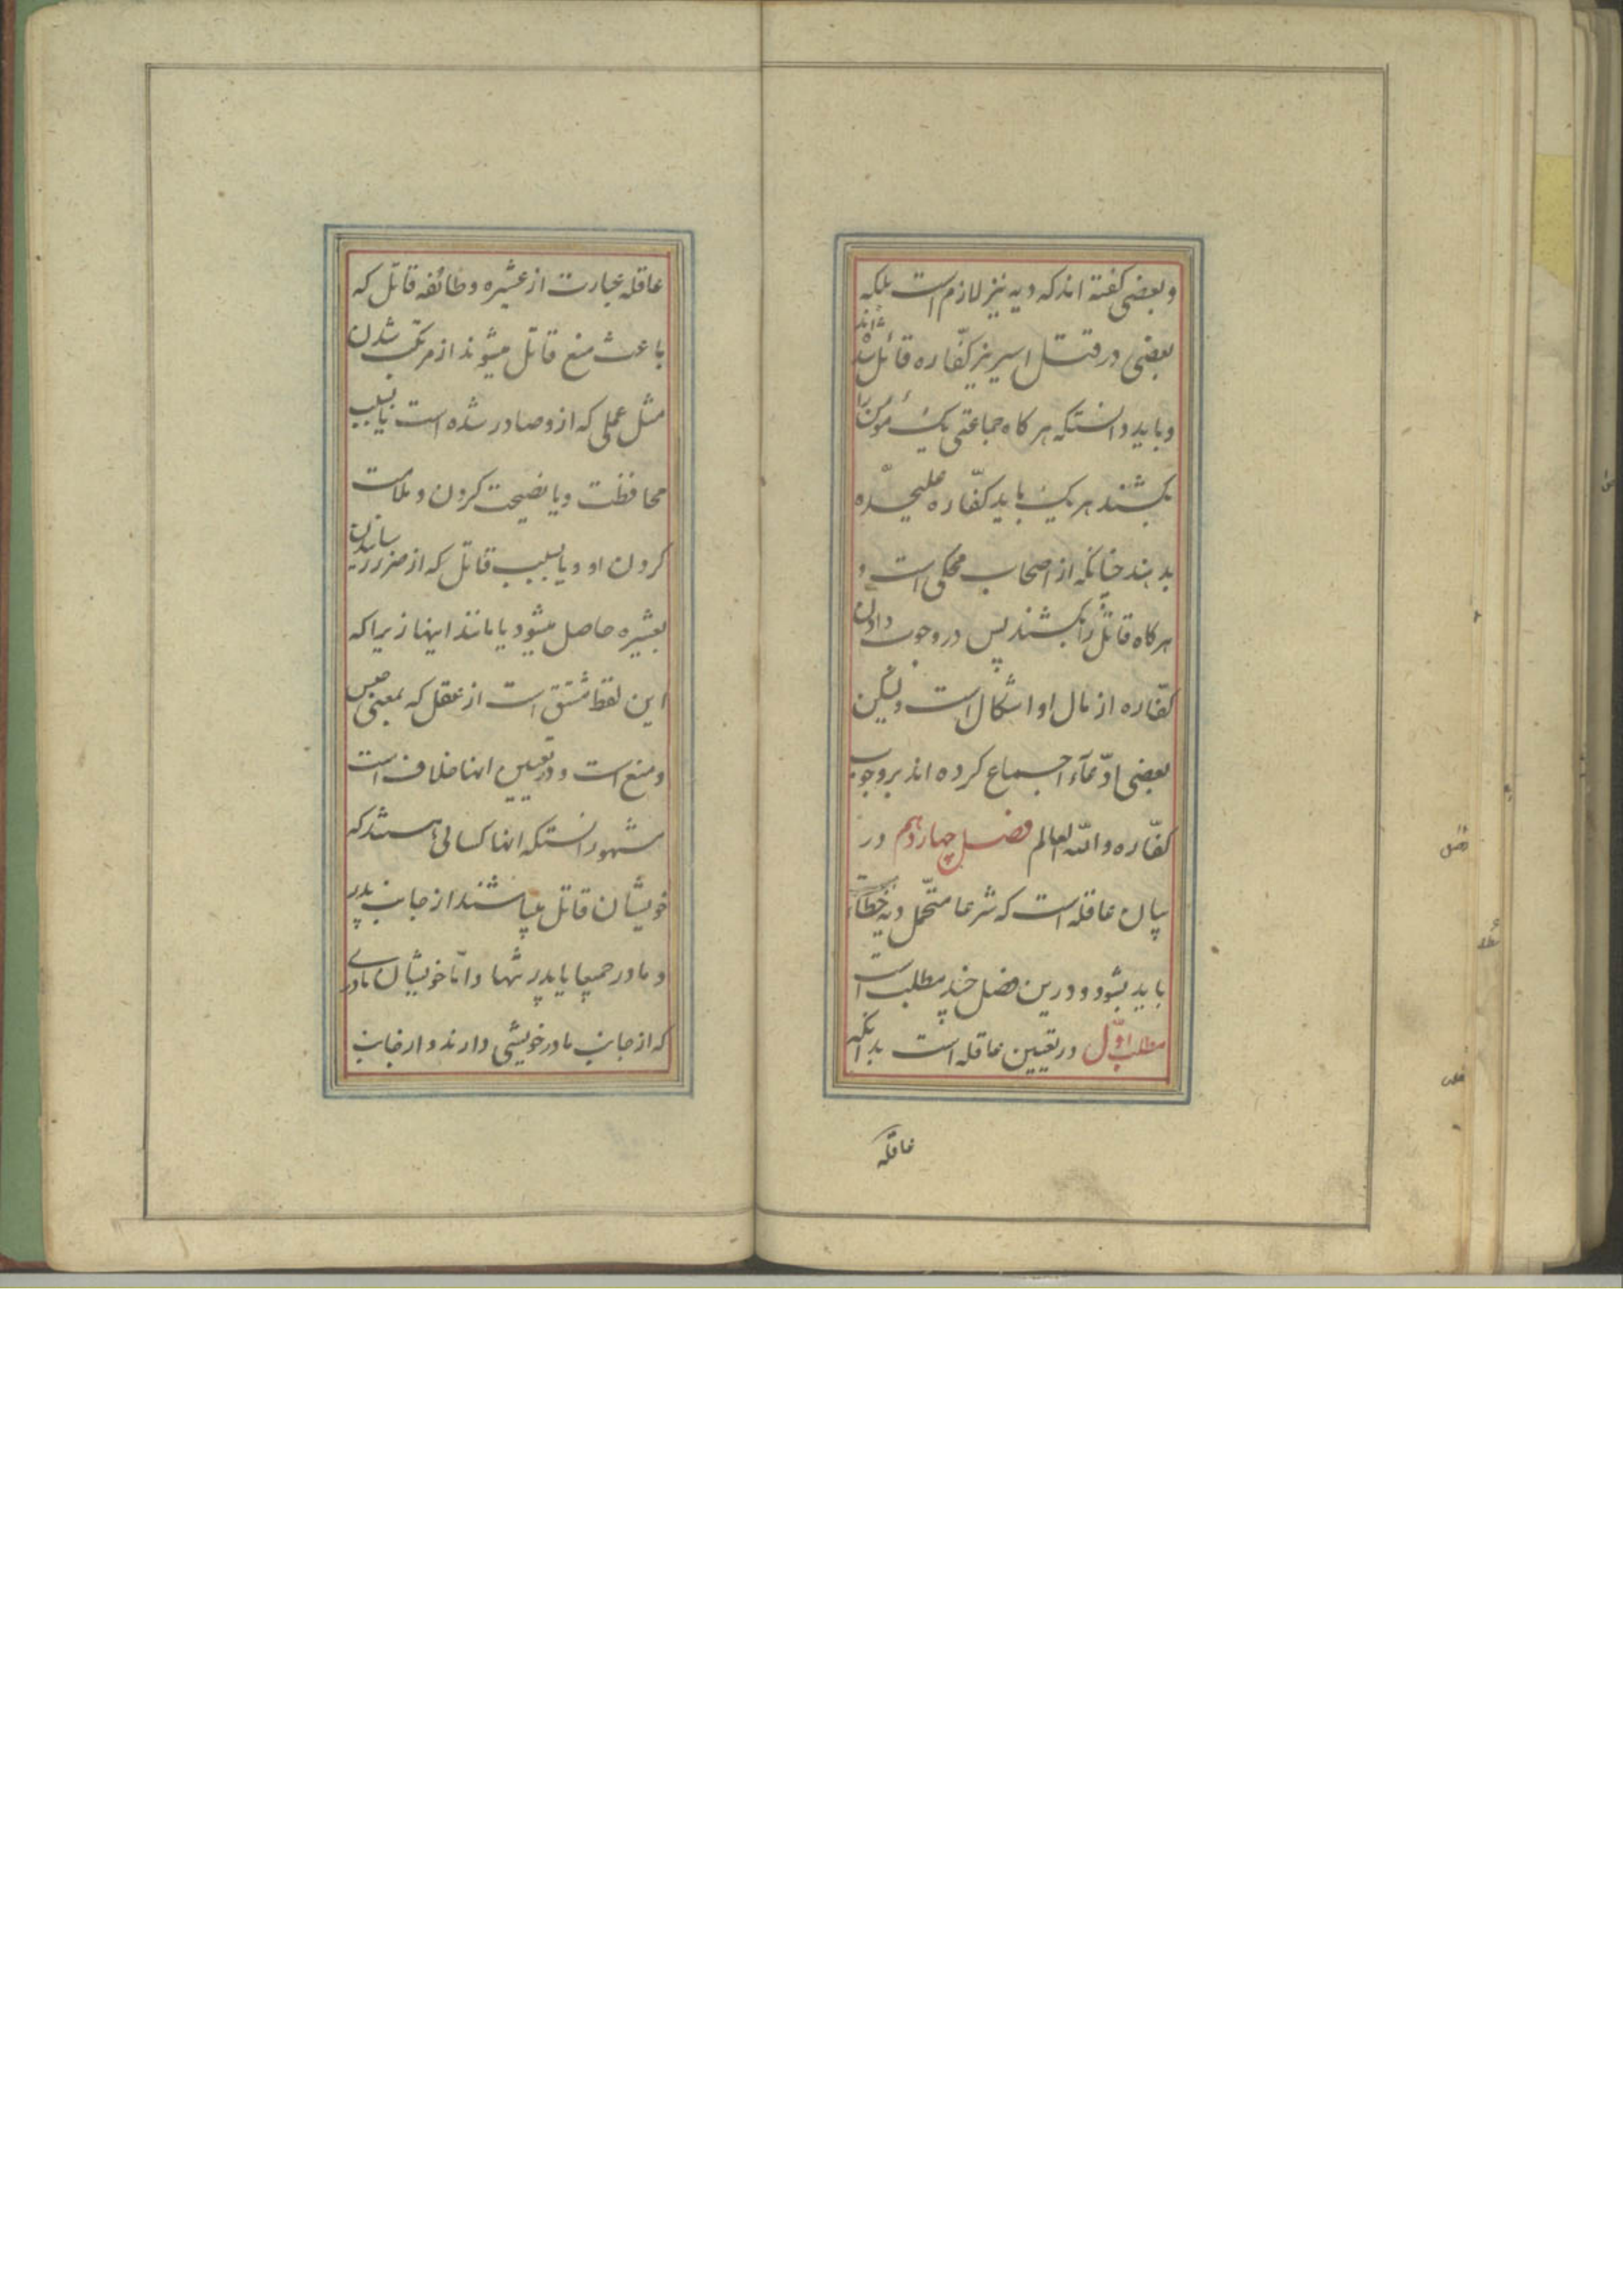 و بعضی گفته اند که دیه نیز لازم است بلکه
بعضی در قتل اسیر نیز کفّاره قائل شده اند
و باید دانستکه هر کاه جماعتی یک مؤمن را
بکشند هر یک باید کفّاره علیحدّه
بدهند چنانکه از اصحاب محکی است و
هر کاه قاتل را بکشند پس در وجوب دادن
کفّاره از مال او اشکال است و لیکن
بعضی ادّعآء اجماع کرده اند بر وجوب
کفّاره و اللّه العالم فصل چهاردهم در
بیان عاقله است که شرعا متحمّل دیه خطآء
باید بشود و درین فصل چند مطلب است
مطلب اوّل در تعیین عاقله است بدانکه
عاقله
عاقله عبارت از عشیره و طائفه قاتل که
باعث منع قاتل میشوند از مرتکب شدن
مثل عملی که ازو صادر شده است یا بسبب
محافظت و یا نصیحت کردن و ملامت
کردن او و یا بسبب قاتل که از ضرر رسانیدن
بعشیره حاصل میشود یا مانند اینها زیرا که
این لفظ مشتق است از عقل که بمعنی حبس
و منع است و در تعیین انها خلاف است
مشهور انستکه انها کسانی هستند که
خویشان قاتل میباشند از جانب پدر
و مادر جمیعا یا پدر تنها و امّا خویشان مادری
که از جانب مادر خویشی دارند و از جانب